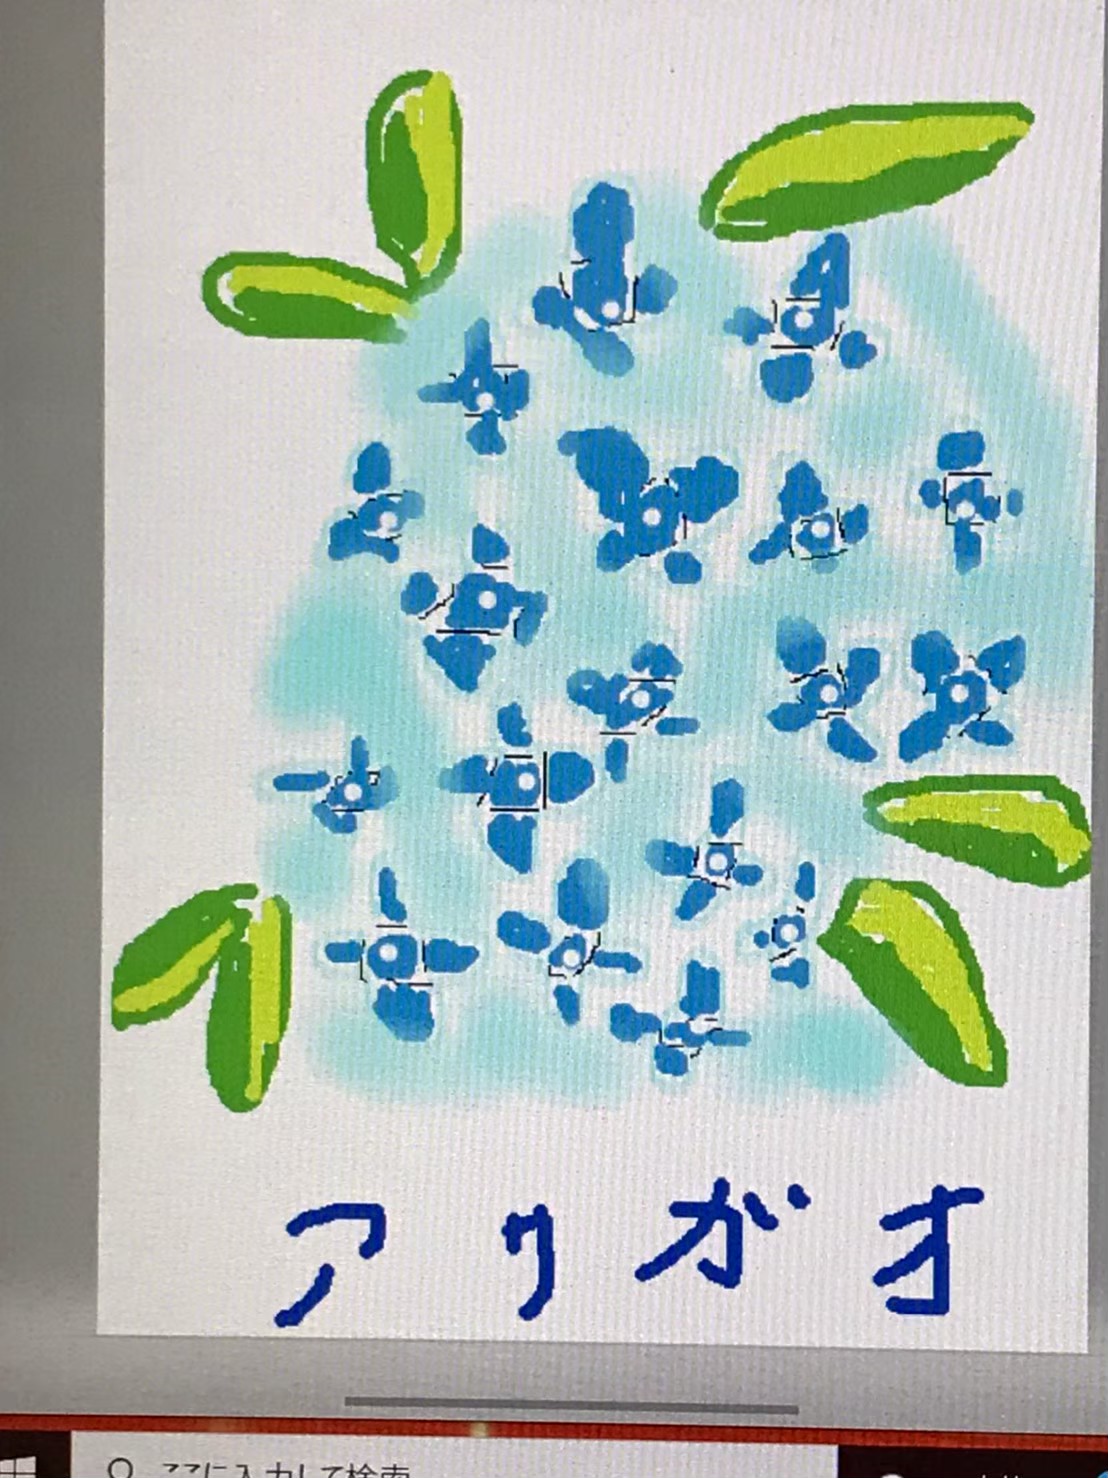 アリガオ
ここに入力して検索